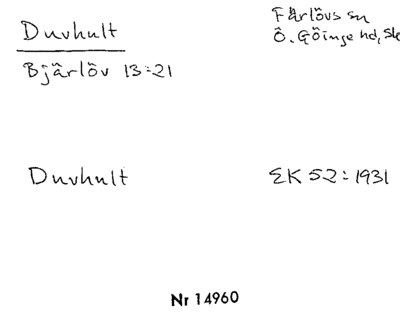 Duvhult
Färlövs sn
Ö. Göinge hd, Sk
Bjärlöv 13:21
Duvhult
EK 52:1931
Nr 14960